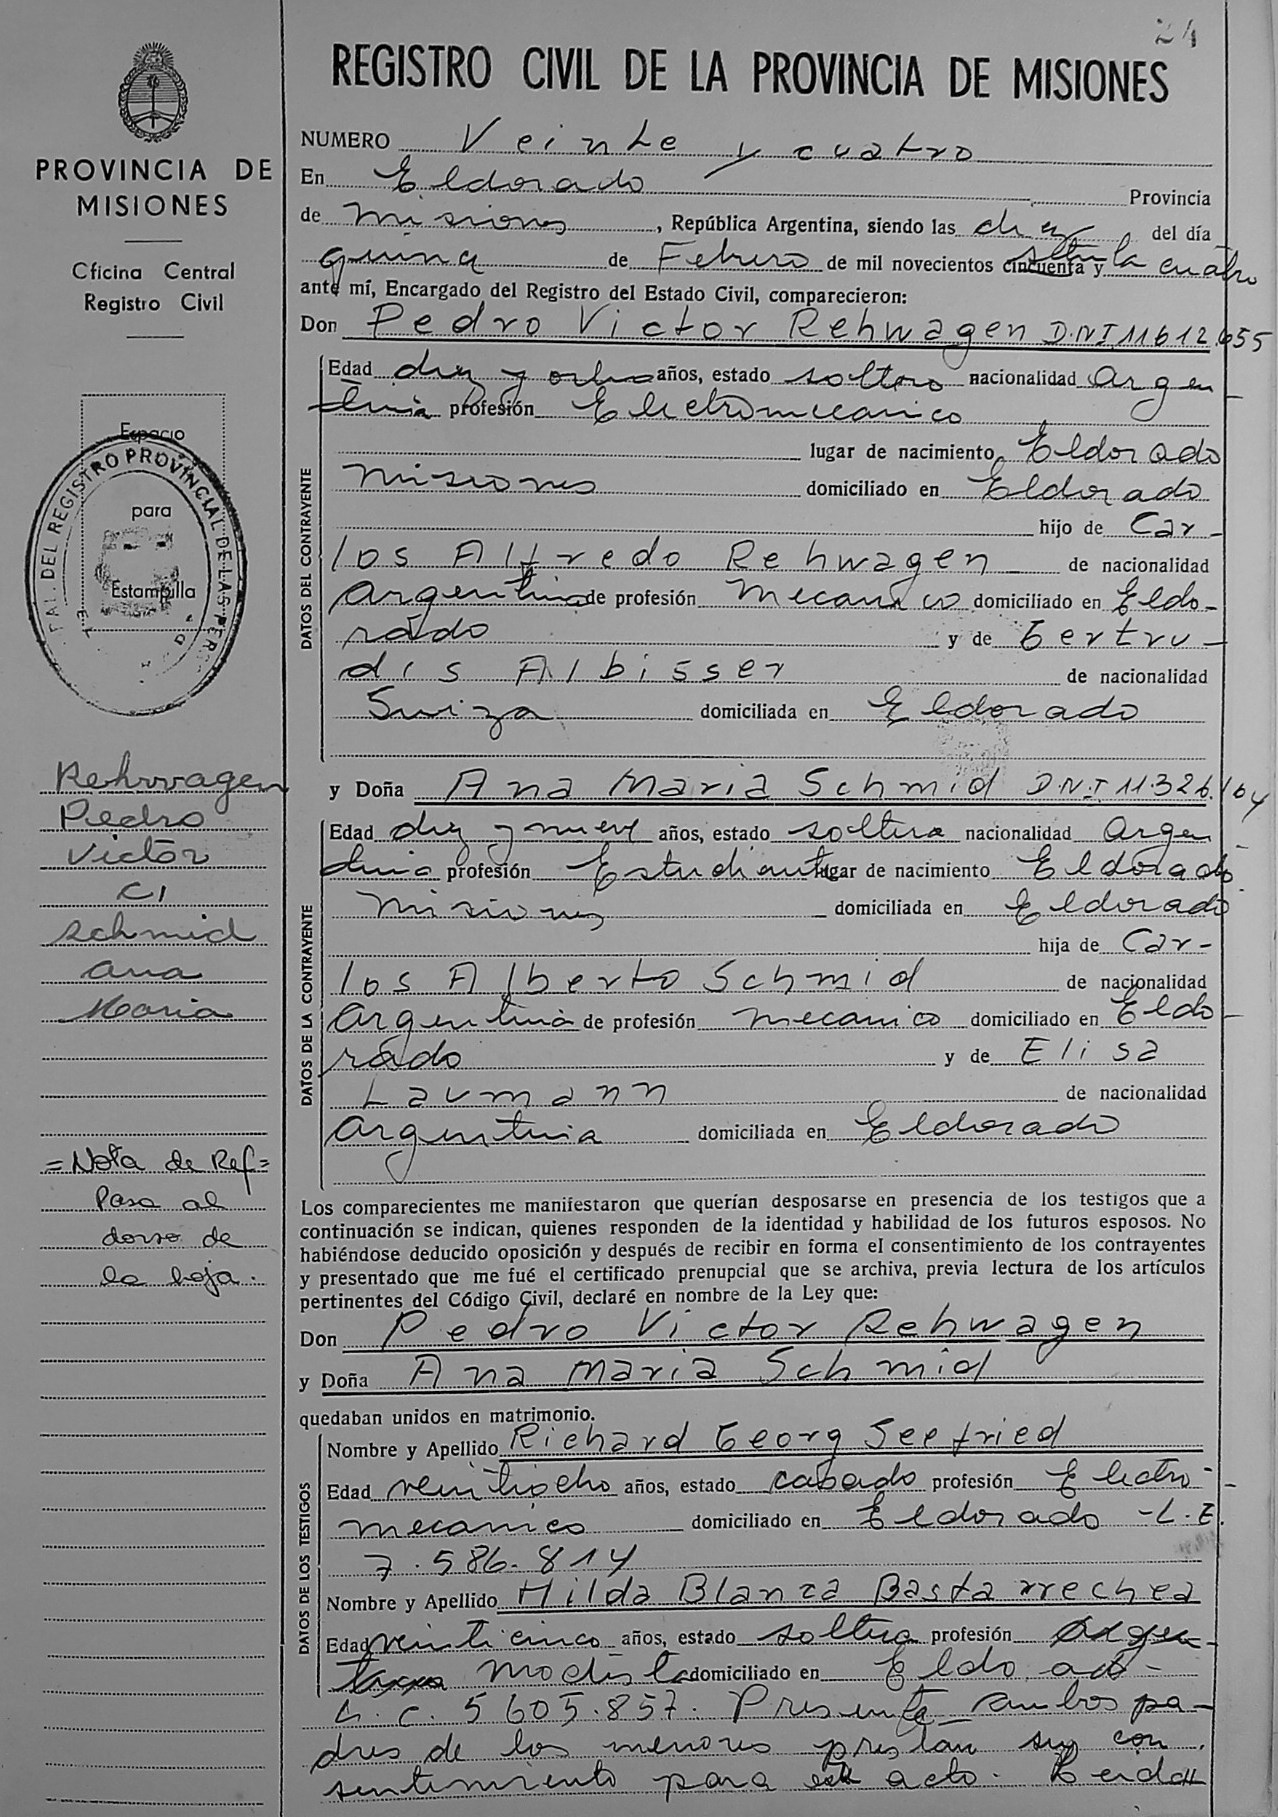 24
REGISTRO CIVIL DE LA PROVINCIA DE MISIONES
PROVINCIA DE
MISIONES
Oficina Central
Registro Civil
Espacio
para
Estampilla
DEL REGISTRO PROVINCIAL DE LAS PER
Rehwagen
Pedro
Victor
C/
Schmid
Ana
Maria
=Nota de Ref=
Pasa al
dorso de
la hoja.
NUMERO Veinte y cuatro
En Eldorado Provincia
de Misiones, República Argentina, siendo las diez del día
quince de Febrero de mil novecientos cincuenta y setenta cuatro
ante mí, Encargado del Registro del Estado Civil, comparecieron:
Don Pedro Victor Rehwagen D.N.I 11612.655
DATOS DEL CONTRAYENTE
Edad diez y ocho años, estado soltero nacionalidad Argen
tina profesión Electromecanico
lugar de nacimiento Eldorado
Misiones domiciliado en Eldorado
hijo de Car-
los Alfredo Rehwagen de nacionalidad
Argentina de profesión Mecanico domiciliado en Eldo-
rado y de Gertru-
dis Albisser de nacionalidad
Suiza domiciliada en Eldorado
y Doña Ana Maria Schmid D.N.I 11.326.164
DATOS DE LA CONTRAYENTE
Edad diez y nueve años, estado soltera nacionalidad Argen
tina profesión Estudiante lugar de nacimiento Eldorado
Misiones domiciliada en Eldorado
hija de Car-
los Alberto Schmid de nacionalidad
Argentina de profesión mecanico domiciliado en Eldo-
rado y de Elisa
Laumann de nacionalidad
Argentina domiciliada en Eldorado
Los comparecientes me manifestaron que querían desposarse en presencia de los testigos que a
continuación se indican, quienes responden de la identidad y habilidad de los futuros esposos. No
habiéndose deducido oposición y después de recibir en forma el consentimiento de los contrayentes
y presentado que me fué el certificado prenupcial que se archiva, previa lectura de los artículos
pertinentes del Código Civil, declaré en nombre de la Ley que:
Don Pedro Victor Rehwagen
y Doña Ana Maria Schmid
quedaban unidos en matrimonio.
DATOS DE LOS TESTIGOS
Nombre y Apellido Richard Georg Seefried
Edad veintiocho años, estado casado profesión Electro-
mecanico domiciliado en Eldorado -L.E.
7.586.814
Nombre y Apellido Hilda Blanca Bastarrechea
Edad veinticinco años, estado soltera profesión Argen-
tina Modista domiciliado en Eldorado-
L.C. 5605.857. Presente ambos pa-
dres de los menores prestan su con
sentimiento para este acto.